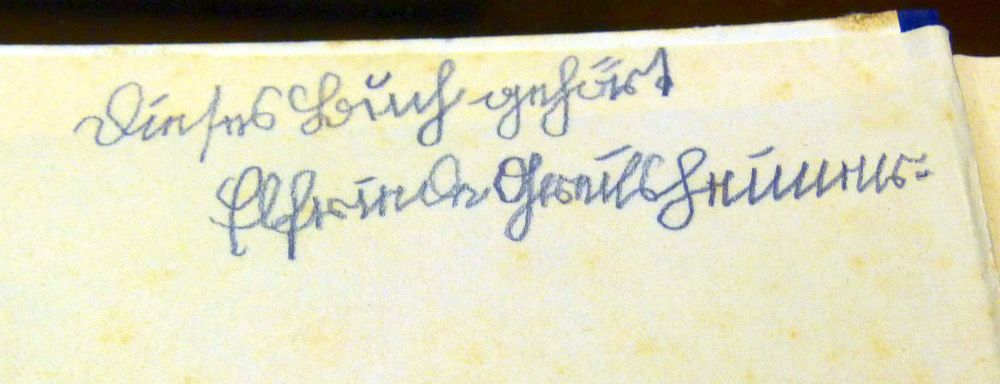 Dieses Buch gehört
Elfriede